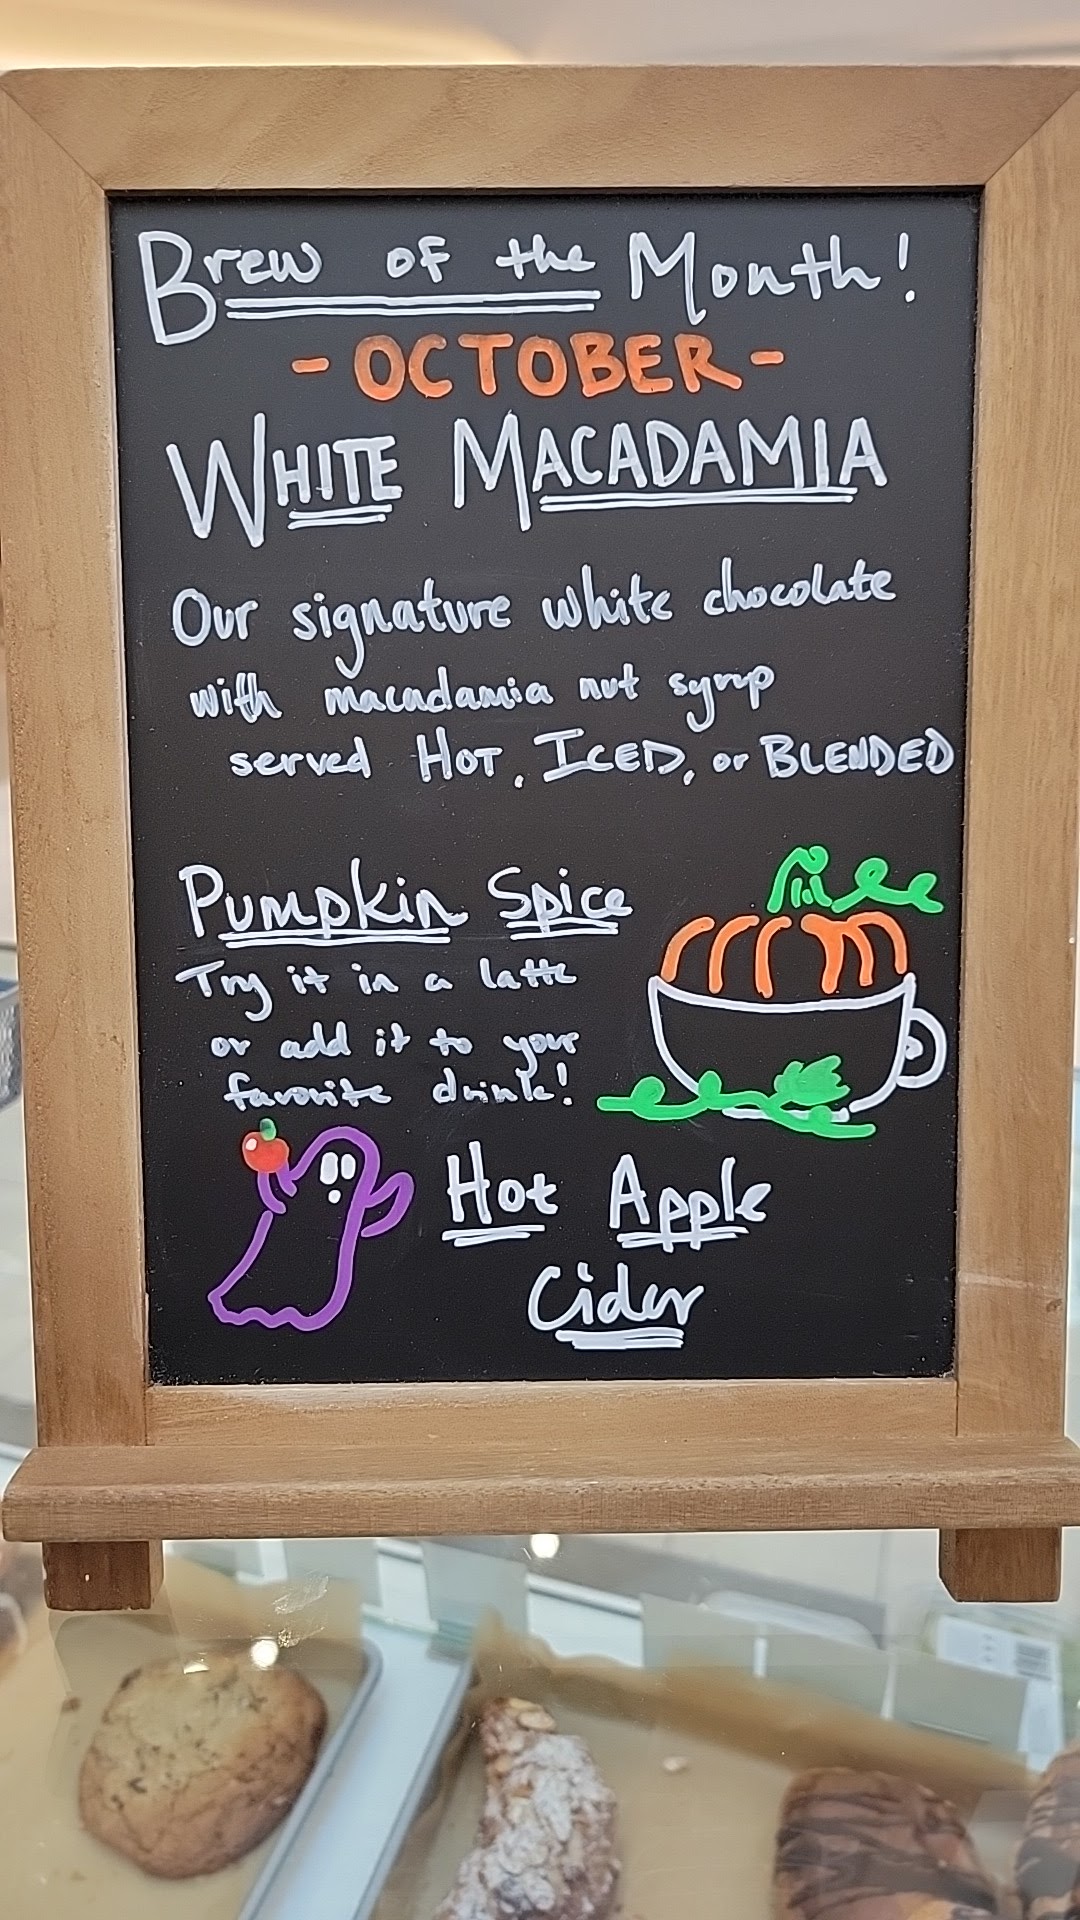 Brew of the Month!
- OCTOBER -
WHITE MACADAMIA
Our signature white chocolate
with macadamia nut syrup
served HOT, ICED, or BLENDED
Pumpkin Spice
Try it in a latte
or add it to your
favorite drink!
Hot Apple
Cider